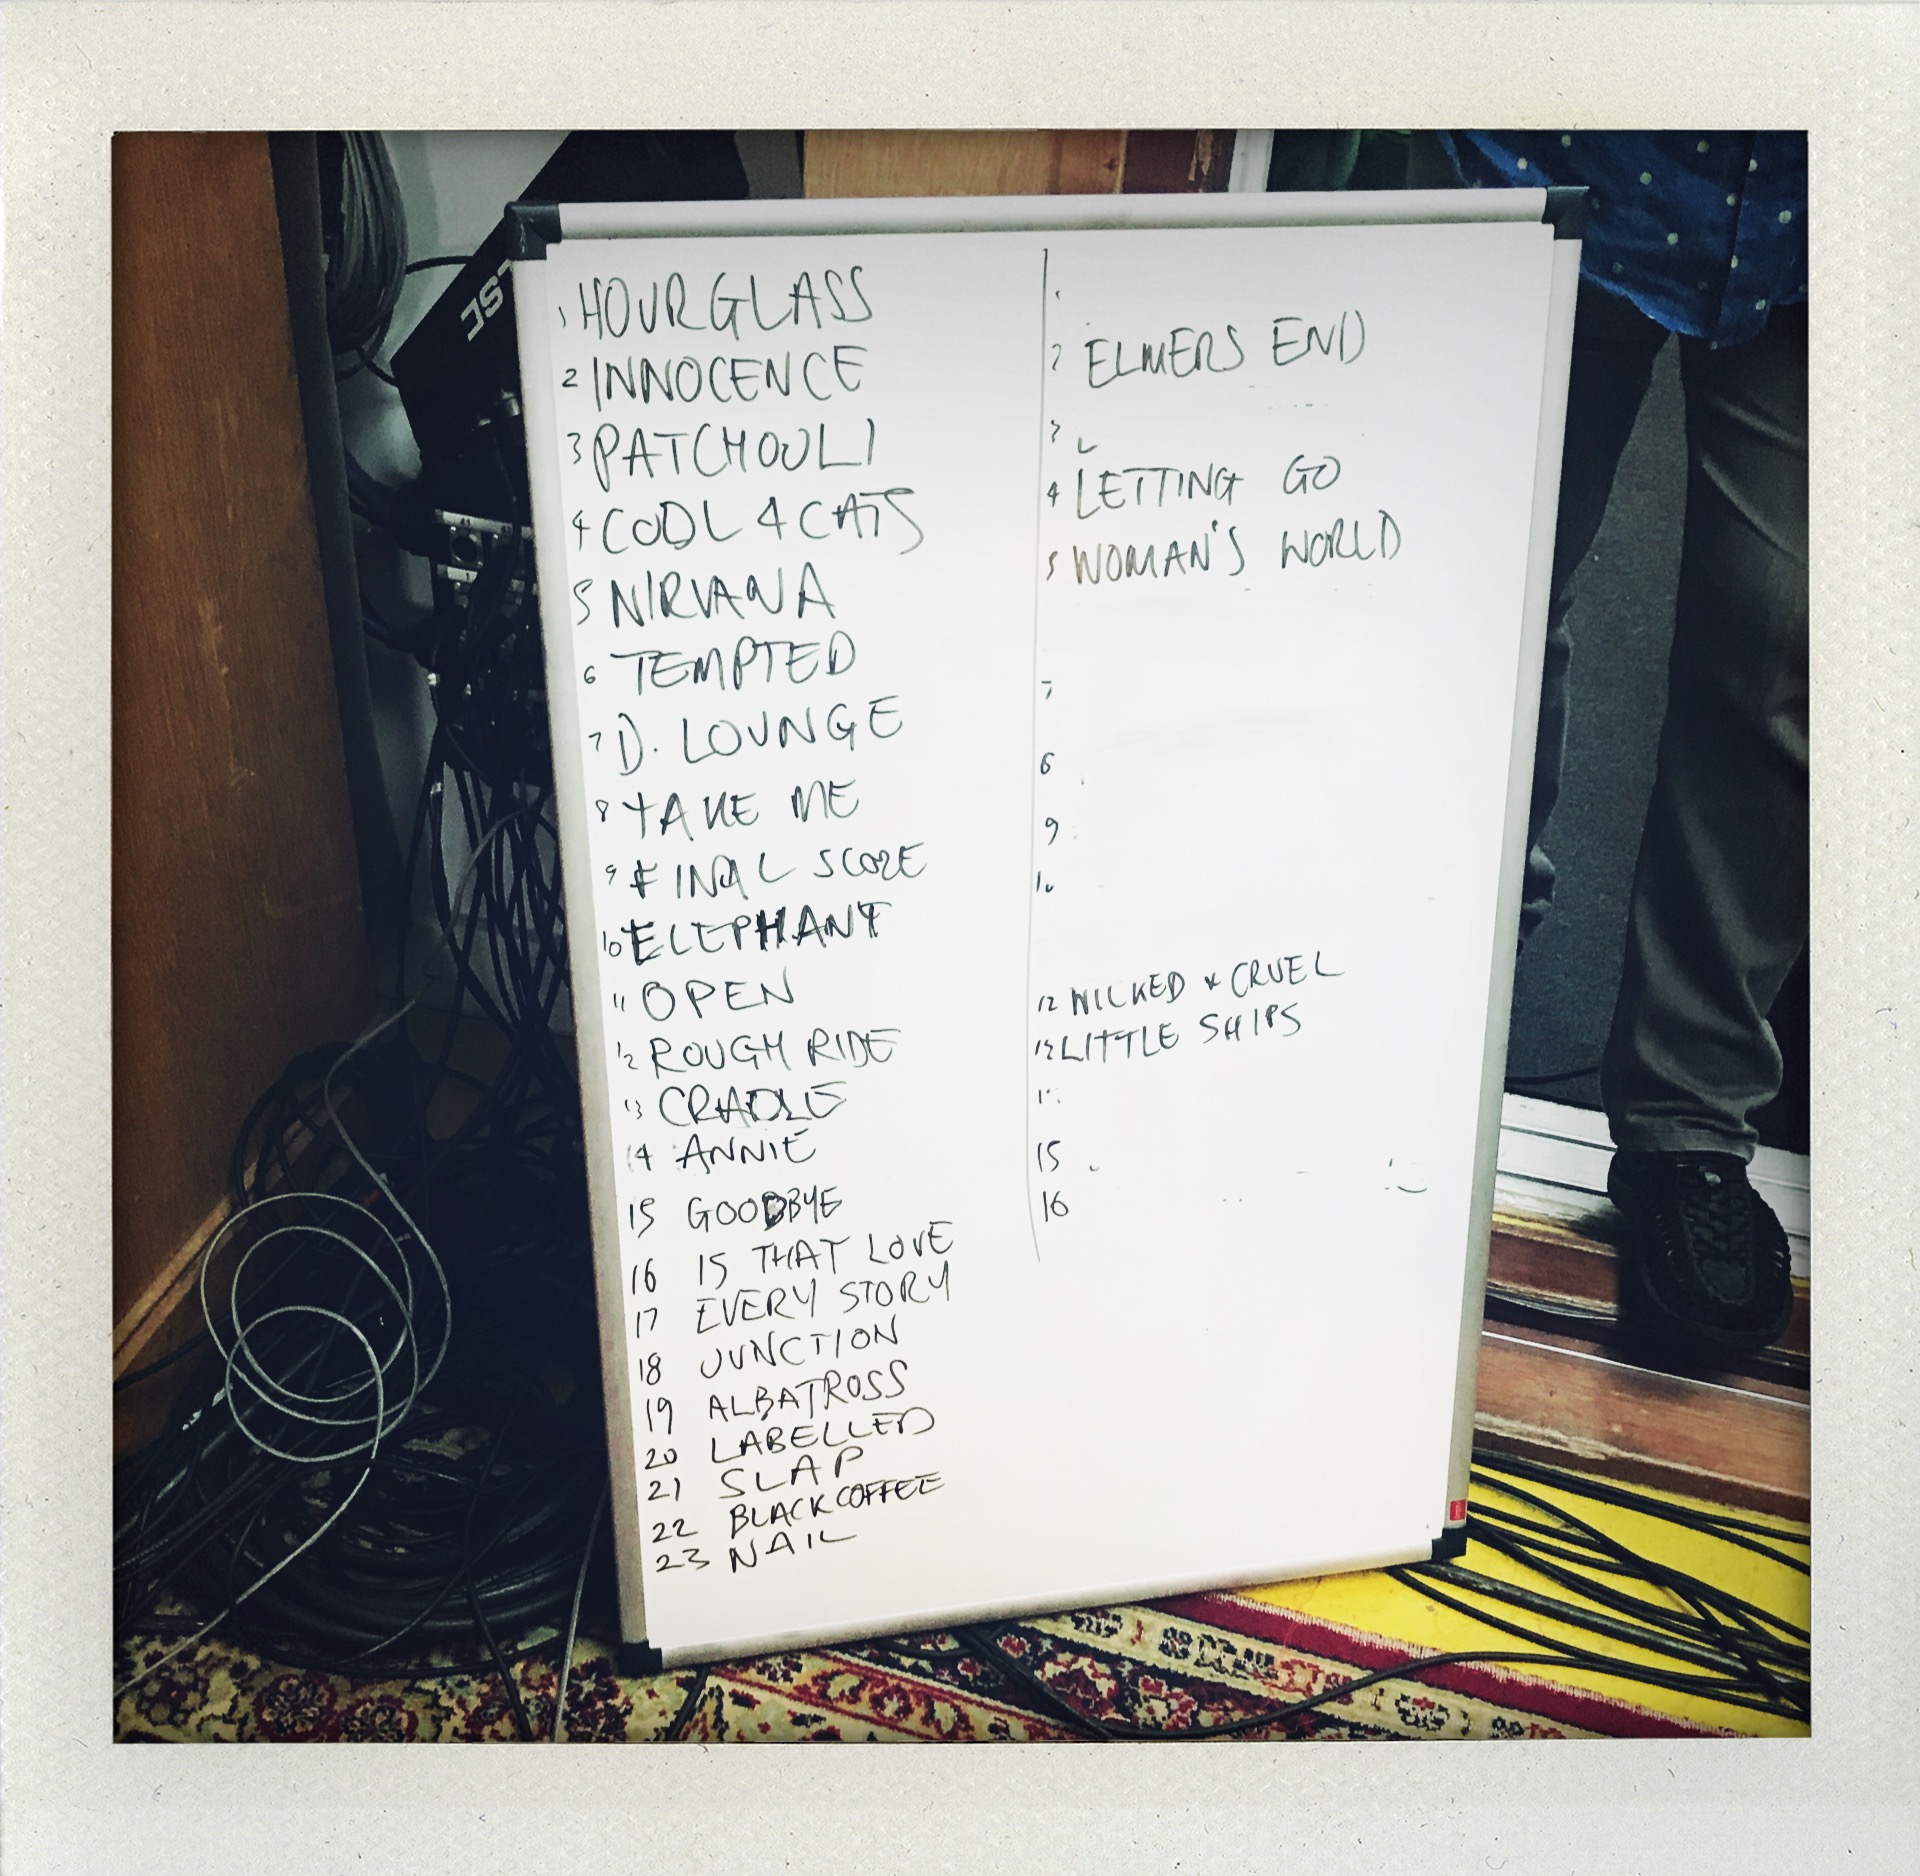 1 HOURGLASS
2 INNOCENCE
3 PATCHOULI
4 COOL 4 CATS
5 NIRVANA
6 TEMPTED
7 D. LOUNGE
8 TAKE ME
9 FINAL SCORE
10 ELEPHANT
11 OPEN
12 ROUGH RIDE
13 CRADLE
14 ANNIE
15 GOODBYE
16 IS THAT LOVE
17 EVERY STORY
18 JUNCTION
19 ALBATROSS
20 LABELLED
21 SLAP
22 BLACK COFFEE
23 NAIL
2 ELMERS END
3
4 LETTING GO
5 WOMAN'S WORLD
7
8
9
10
12 WICKED & CRUEL
13 LITTLE SHIPS
15
16